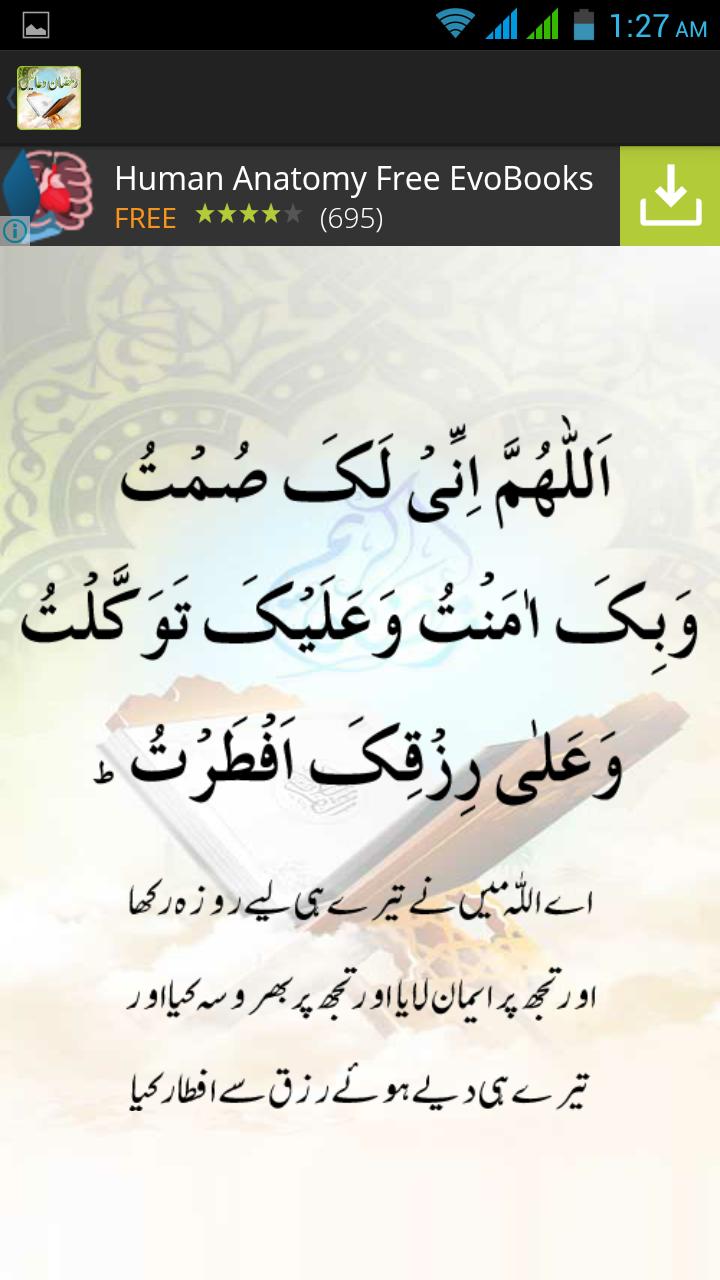 1:27 AM
رمضان دعائیں
Human Anatomy Free EvoBooks
FREE (695)
اَللّٰهُمَّ اِنِّیْ لَکَ صُمْتُ
وَبِکَ اٰمَنْتُ وَعَلَیْکَ تَوَکَّلْتُ
وَعَلٰی رِزْقِکَ اَفْطَرْتُ ؕ
اے اللہ میں نے تیرے ہی لیے روزہ رکھا
اور تجھ پر ایمان لایا اور تجھ پر بھروسہ کیا اور
تیرے ہی دیے ہوئے رزق سے افطار کیا